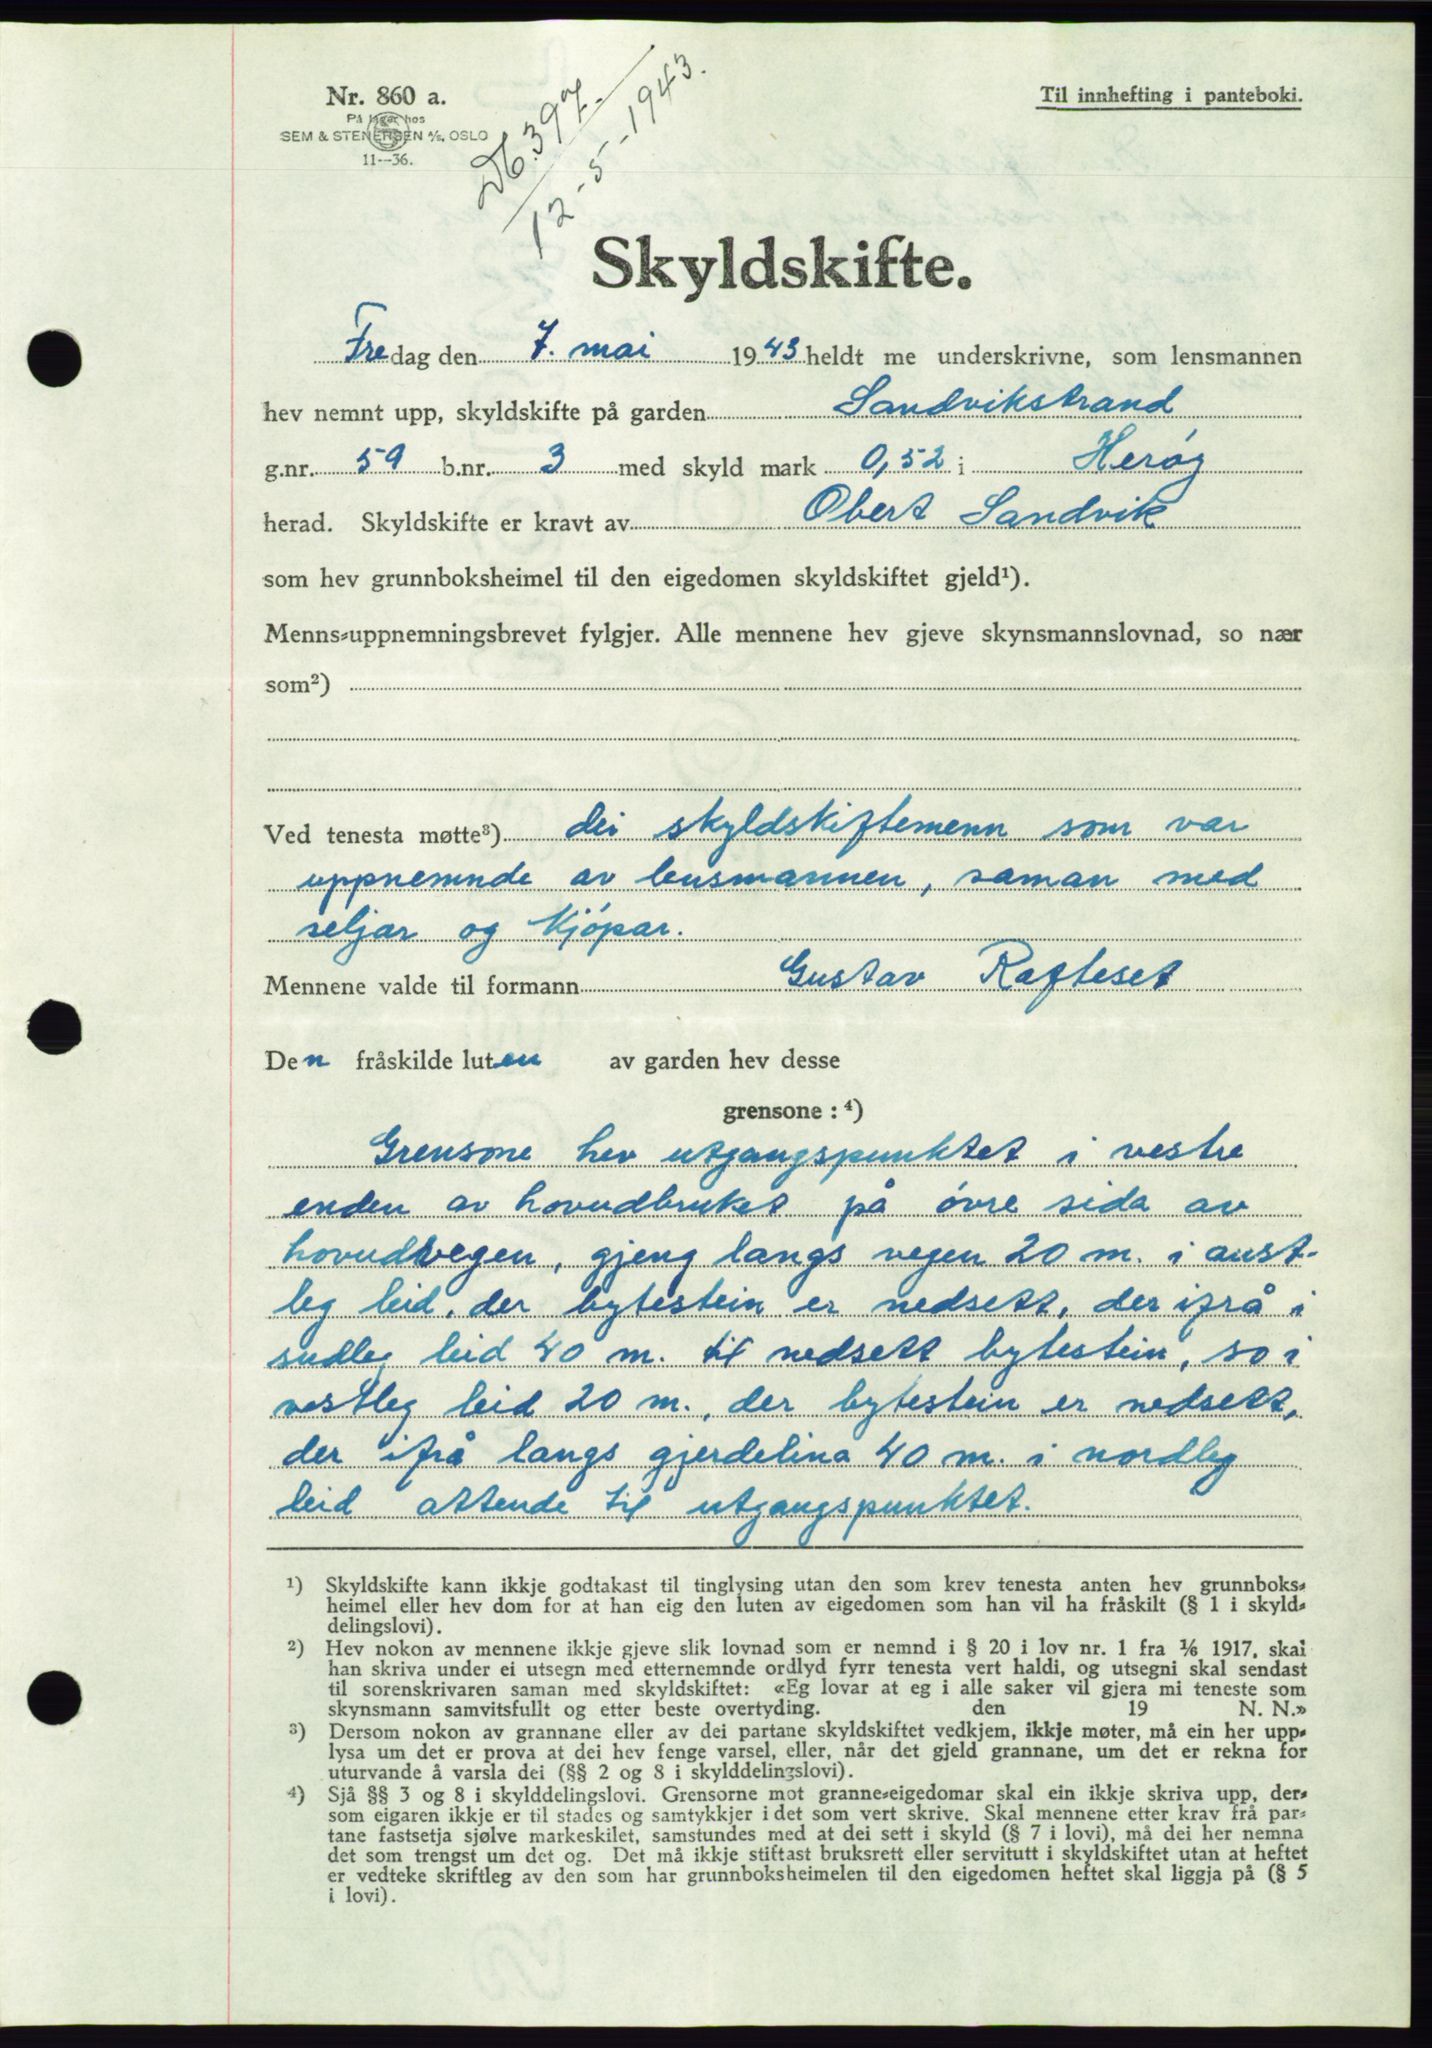 Nr. 860 a.
På lager hos
SEM & STENERSEN A/S, OSLO
11--36.
Db. 397.
12-5-1943.
Til innhefting i panteboki.
Skyldskifte.
Fredag den 7. mai 1943 heldt me underskrivne, som lensmannen
hev nemnt upp, skyldskifte på garden Sandvikstrand
g.nr. 59 b.nr. 3 med skyld mark 0,52 i Herøy
herad. Skyldskifte er kravt av Obert Sandvik
som hev grunnboksheimel til den eigedomen skyldskiftet gjeld¹).
Menns-uppnemningsbrevet fylgjer. Alle mennene hev gjeve skynsmannslovnad, so nær
som²)
Ved tenesta møtte³) dei skyldskiftemenn som var
uppnemnde av lensmannen, saman med
seljar og kjöpar.
Mennene valde til formann Gustav Rafteset
Den fråskilde luten av garden hev desse
grensone : ⁴)
Grensone hev utgangspunktet i vestre
enden av hovudbruket på övre sida av
hovudvegen, gjeng langs vegen 20 m. i aust-
leg leid, der bytestein er nedsett, der ifrå i
sudleg leid 40 m. til nedsett bytestein, so i
vestleg leid 20 m., der bytestein er nedsett,
der ifrå langs gjerdelina 40 m. i nordleg
leid attende til utgangspunktet.
¹) Skyldskifte kann ikkje godtakast til tinglysing utan den som krev tenesta anten hev grunnboks-
heimel eller hev dom for at han eig den luten av eigedomen som han vil ha fråskilt (§ 1 i skyld-
delingslovi).
²) Hev nokon av mennene ikkje gjeve slik lovnad som er nemnd i § 20 i lov nr. 1 fra ¹/₆ 1917, skal
han skriva under ei utsegn med etternemnde ordlyd fyrr tenesta vert haldi, og utsegni skal sendast
til sorenskrivaren saman med skyldskiftet: «Eg lovar at eg i alle saker vil gjera mi teneste som
skynsmann samvitsfullt og etter beste overtyding. den 19 N. N.»
³) Dersom nokon av grannane eller av dei partane skyldskiftet vedkjem, ikkje møter, må ein her upp-
lysa um det er prova at dei hev fenge varsel, eller, når det gjeld grannane, um det er rekna for
uturvande å varsla dei (§§ 2 og 8 i skylddelingslovi).
⁴) Sjå §§ 3 og 8 i skylddelingslovi. Grensorne mot granne-eigedomar skal ein ikkje skriva upp, der-
som eigaren ikkje er til stades og samtykkjer i det som vert skrive. Skal mennene etter krav frå par-
tane fastsetja sjølve markeskilet, samstundes med at dei sett i skyld (§ 7 i lovi), må dei her nemna
det som trengst um det og. Det må ikkje stiftast bruksrett eller servitutt i skyldskiftet utan at heftet
er vedteke skriftleg av den som har grunnboksheimelen til den eigedomen heftet skal liggja på (§ 5
i lovi).